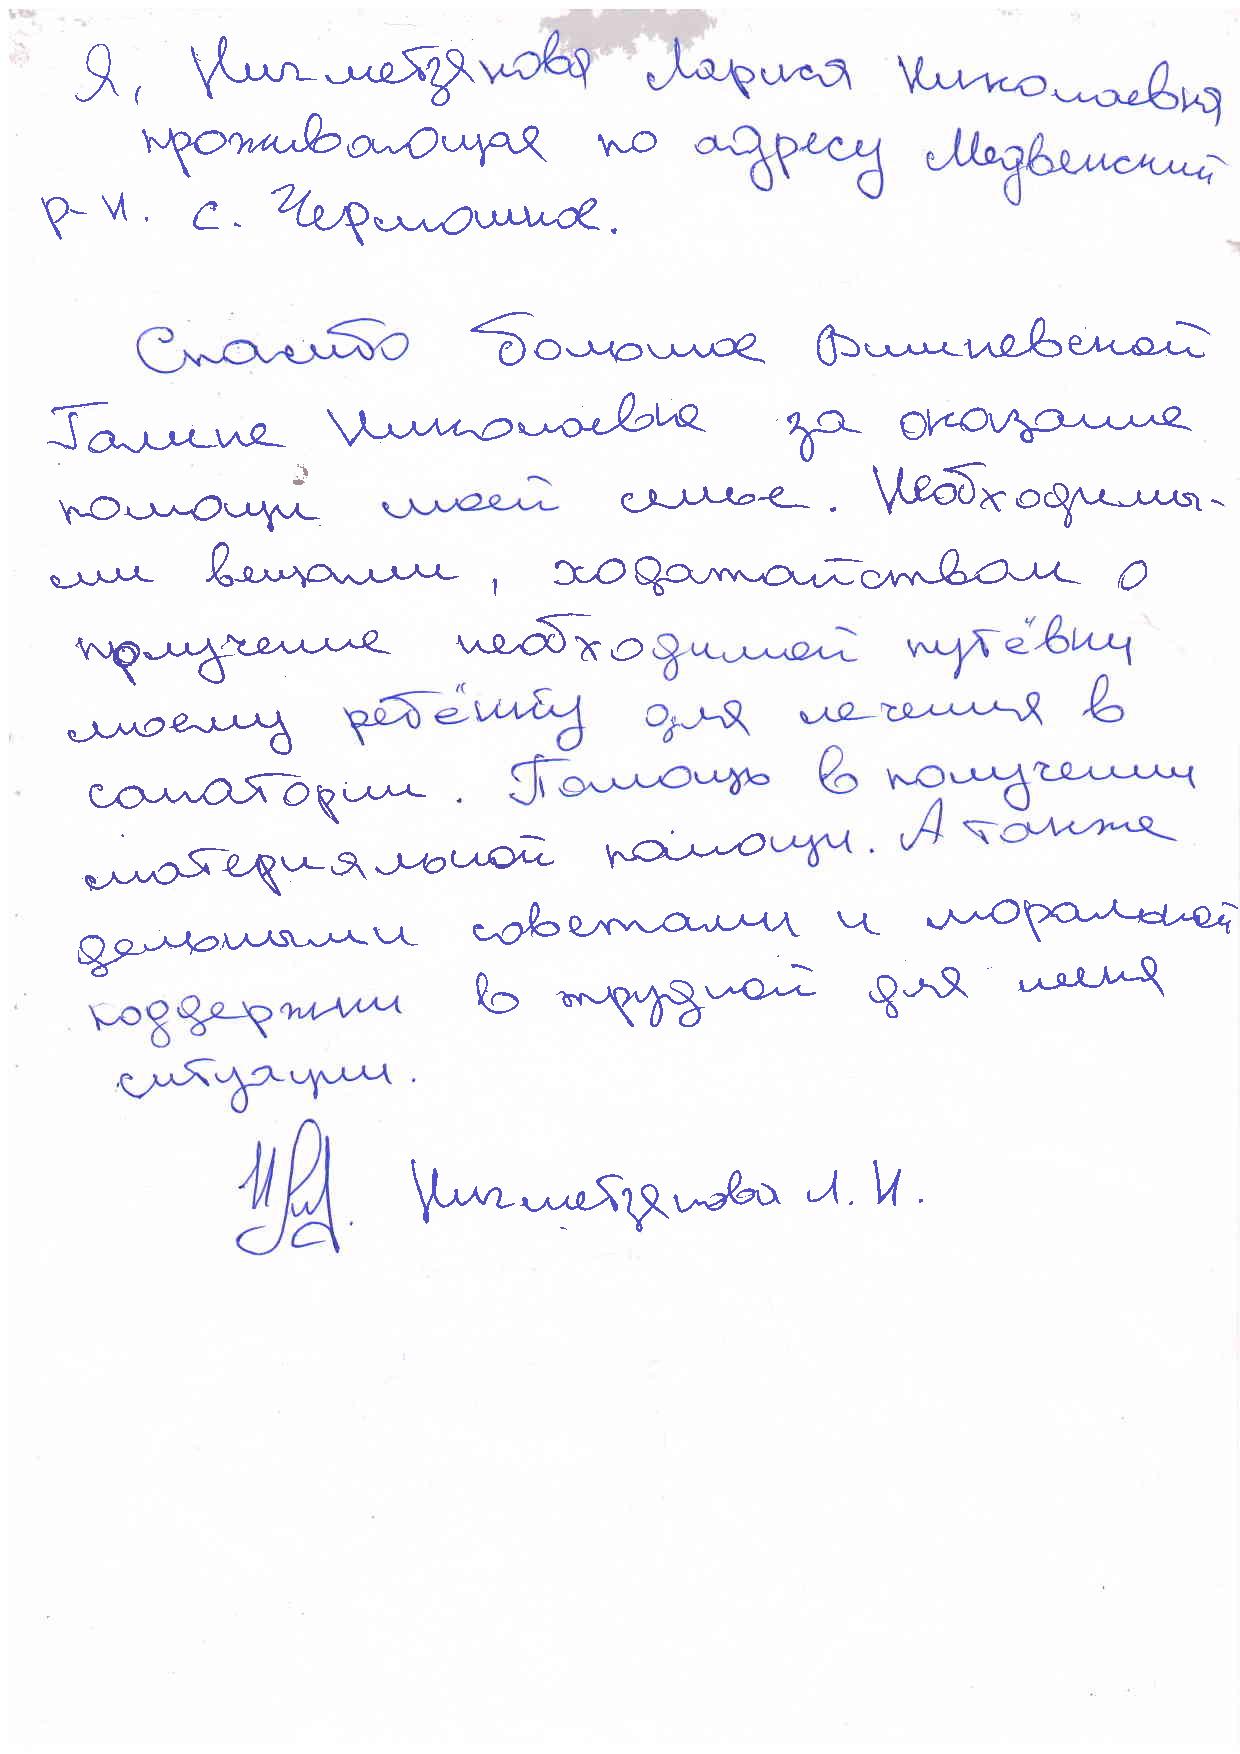 Я, Нигметзянова Лариса Николаевна
проживающая по адресу Медвенский
р-н. с. Чермошное.
Спасибо большое Вишневской
Галине Николаевне за оказание
помощи моей семье. Необходимы-
ми вещами, ходатайством о
получение необходимой путёвки
моему ребёнку для лечения в
санатории. Помощь в получении
материяльной помощи. А также
дельными советами и моральной
поддержки в трудной для меня
ситуации.
Нигметзянова Л. Н.